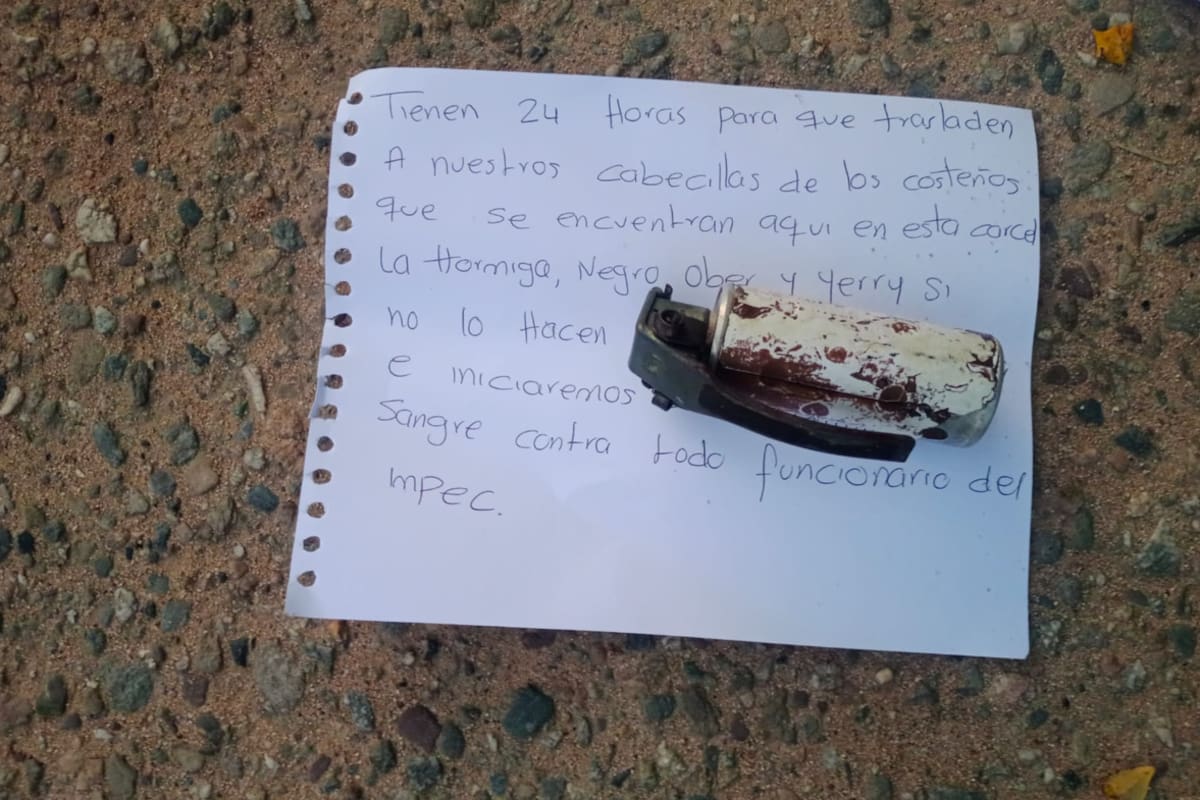 Tienen 24 Horas para que trasladen
A nuestros cabecillas de los costeños
que se encuentran aqui en esta carcel
La Hormiga, Negro Ober y Yerry si
no lo Hacen
e iniciaremos
Sangre contra todo funcionario del
Inpec.